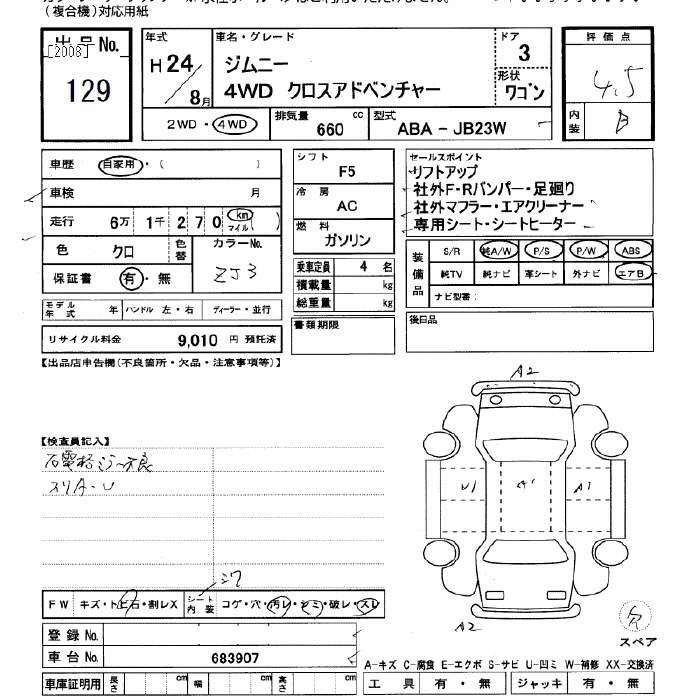 （複合機）対応用紙
出品No.
[2008]
129
年式
H24/8月
車名・グレード
ジムニー
4WD クロスアドベンチャー
ドア
3
形状
ワゴン
2WD・4WD
排気量
660 cc
型式
ABA - JB23W
評価点
4.5
内装
B
車歴 自家用・( )
車検 月
走行 6万 1千 270 km マイル ( )
色 クロ
色替
カラーNo.
ZJ3
保証書 有・無
モデル年式 年
ハンドル 左・右
ディーラー・並行
リサイクル料金 9,010 円 預託済
シフト
F5
冷房
AC
燃料
ガソリン
乗車定員 4 名
積載量 kg
総重量 kg
書類期限
セールスポイント
リフトアップ
社外F・Rバンパー・足廻り
社外マフラー・エアクリーナー
専用シート・シートヒーター
装備品
S/R 純A/W P/S P/W ABS
純TV 純ナビ 革シート 外ナビ エアB
ナビ型番:
後日品
【出品店申告欄(不良箇所・欠品・注意事項等)】
【検査員記入】
右電格ミラー不良
スリA-U
A2
U1
A1
A1
A2
シワ
FW キズ・ト上石・割レX
シート内装 コゲ・穴・汚レ・シミ・破レ・スレ
登録No.
車台No. 683907
車庫証明用 長さ cm 幅 cm 高さ cm
スペア
A-キズ C-腐食 E-エクボ S-サビ U-凹ミ W-補修 XX-交換済
工具 有・無 ジャッキ 有・無